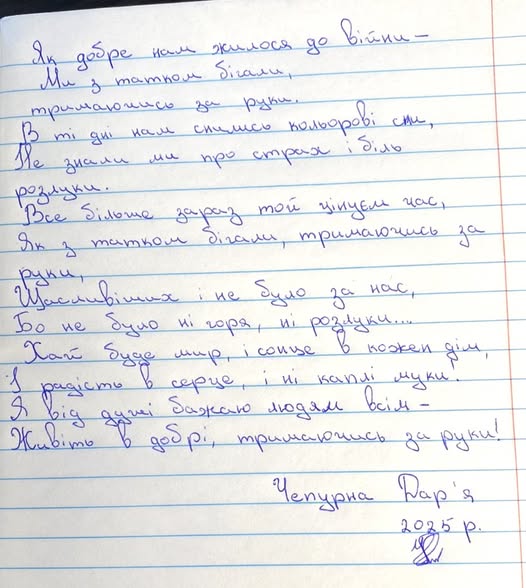 Як добре нам жилося до війни –
Ми з татком бігали,
тримаючись за руки.
В ті дні нам снились кольорові сни,
Не знали ми про страх і біль
розлуки.
Все більше зараз той цінуєм час,
Як з татком бігали, тримаючись за
руки,
Щасливіших і не було за нас,
Бо не було ні горя, ні розлуки...
Хай буде мир, і сонце в кожен дім,
І радість в серце, і ні каплі муки!
Я від душі бажаю людям всім –
Живіть в добрі, тримаючись за руки!
Чепурна Дар'я
2025 р.